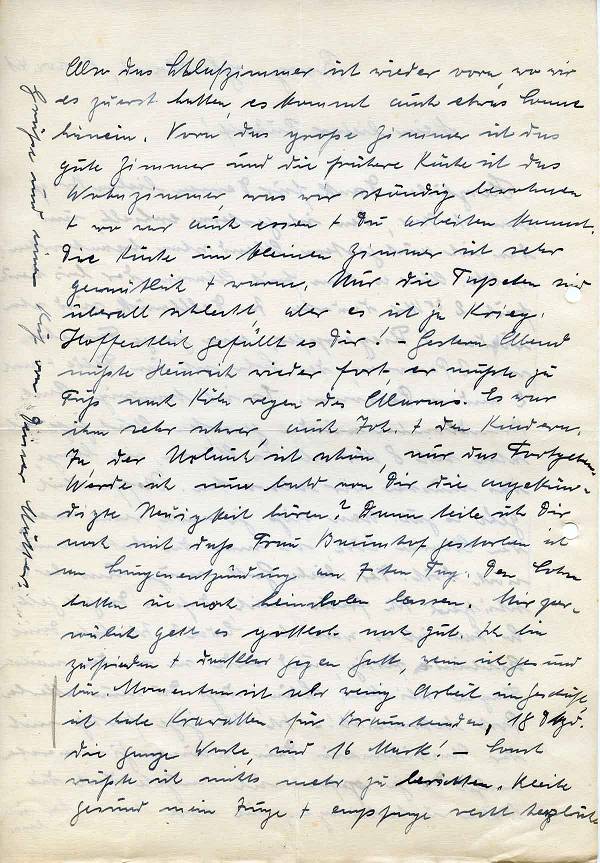 Also das Schlafzimmer ist wieder vorn, wo wir
es zuerst hatten, es kommt auch etwas Sonne
hinein. Vorn das große Zimmer ist das
gute Zimmer und die frühere Küche ist das
Wohnzimmer, was wir ständig bewohnen
+ wo wir auch essen + Du arbeiten kannst.
Die Küche im kleinen Zimmer ist sehr
gemütlich + warm. Nur die Tapeten sind
überall schlecht aber es ist ja Krieg.
Hoffentlich gefällt es Dir! – Gestern Abend
mußte Heinrich wieder fort, er mußte zu
Fuß nach Köln wegen des Alarms. Es war
ihm sehr schwer, auch Joh. + den Kindern.
Ja der Urlaub ist schön, nur das Fortgehen.
Werde ich nun bald von Dir die angekün-
digte Neuigkeit hören? Dann teile ich Dir
noch mit daß Frau gestorben ist
an Lungenentzündung am 7ten Tag. Den Sohn
hatten sie noch heimholen lassen. Mir per-
sönlich geht es gottlob noch gut. Ich bin
zufrieden + dankbar gegen Gott, wenn ich gesund
bin. Momentan ist sehr wenig Arbeit im Geschäft,
ich habe Krawatten für 18 Dtzd.
die ganze Woche, sind 16 Mark! – Sonst
wüßte ich nichts mehr zu berichten. Bleibe
gesund mein Junge + empfange recht herzliche
Grüße und einen Kuß von Deiner Mutter.